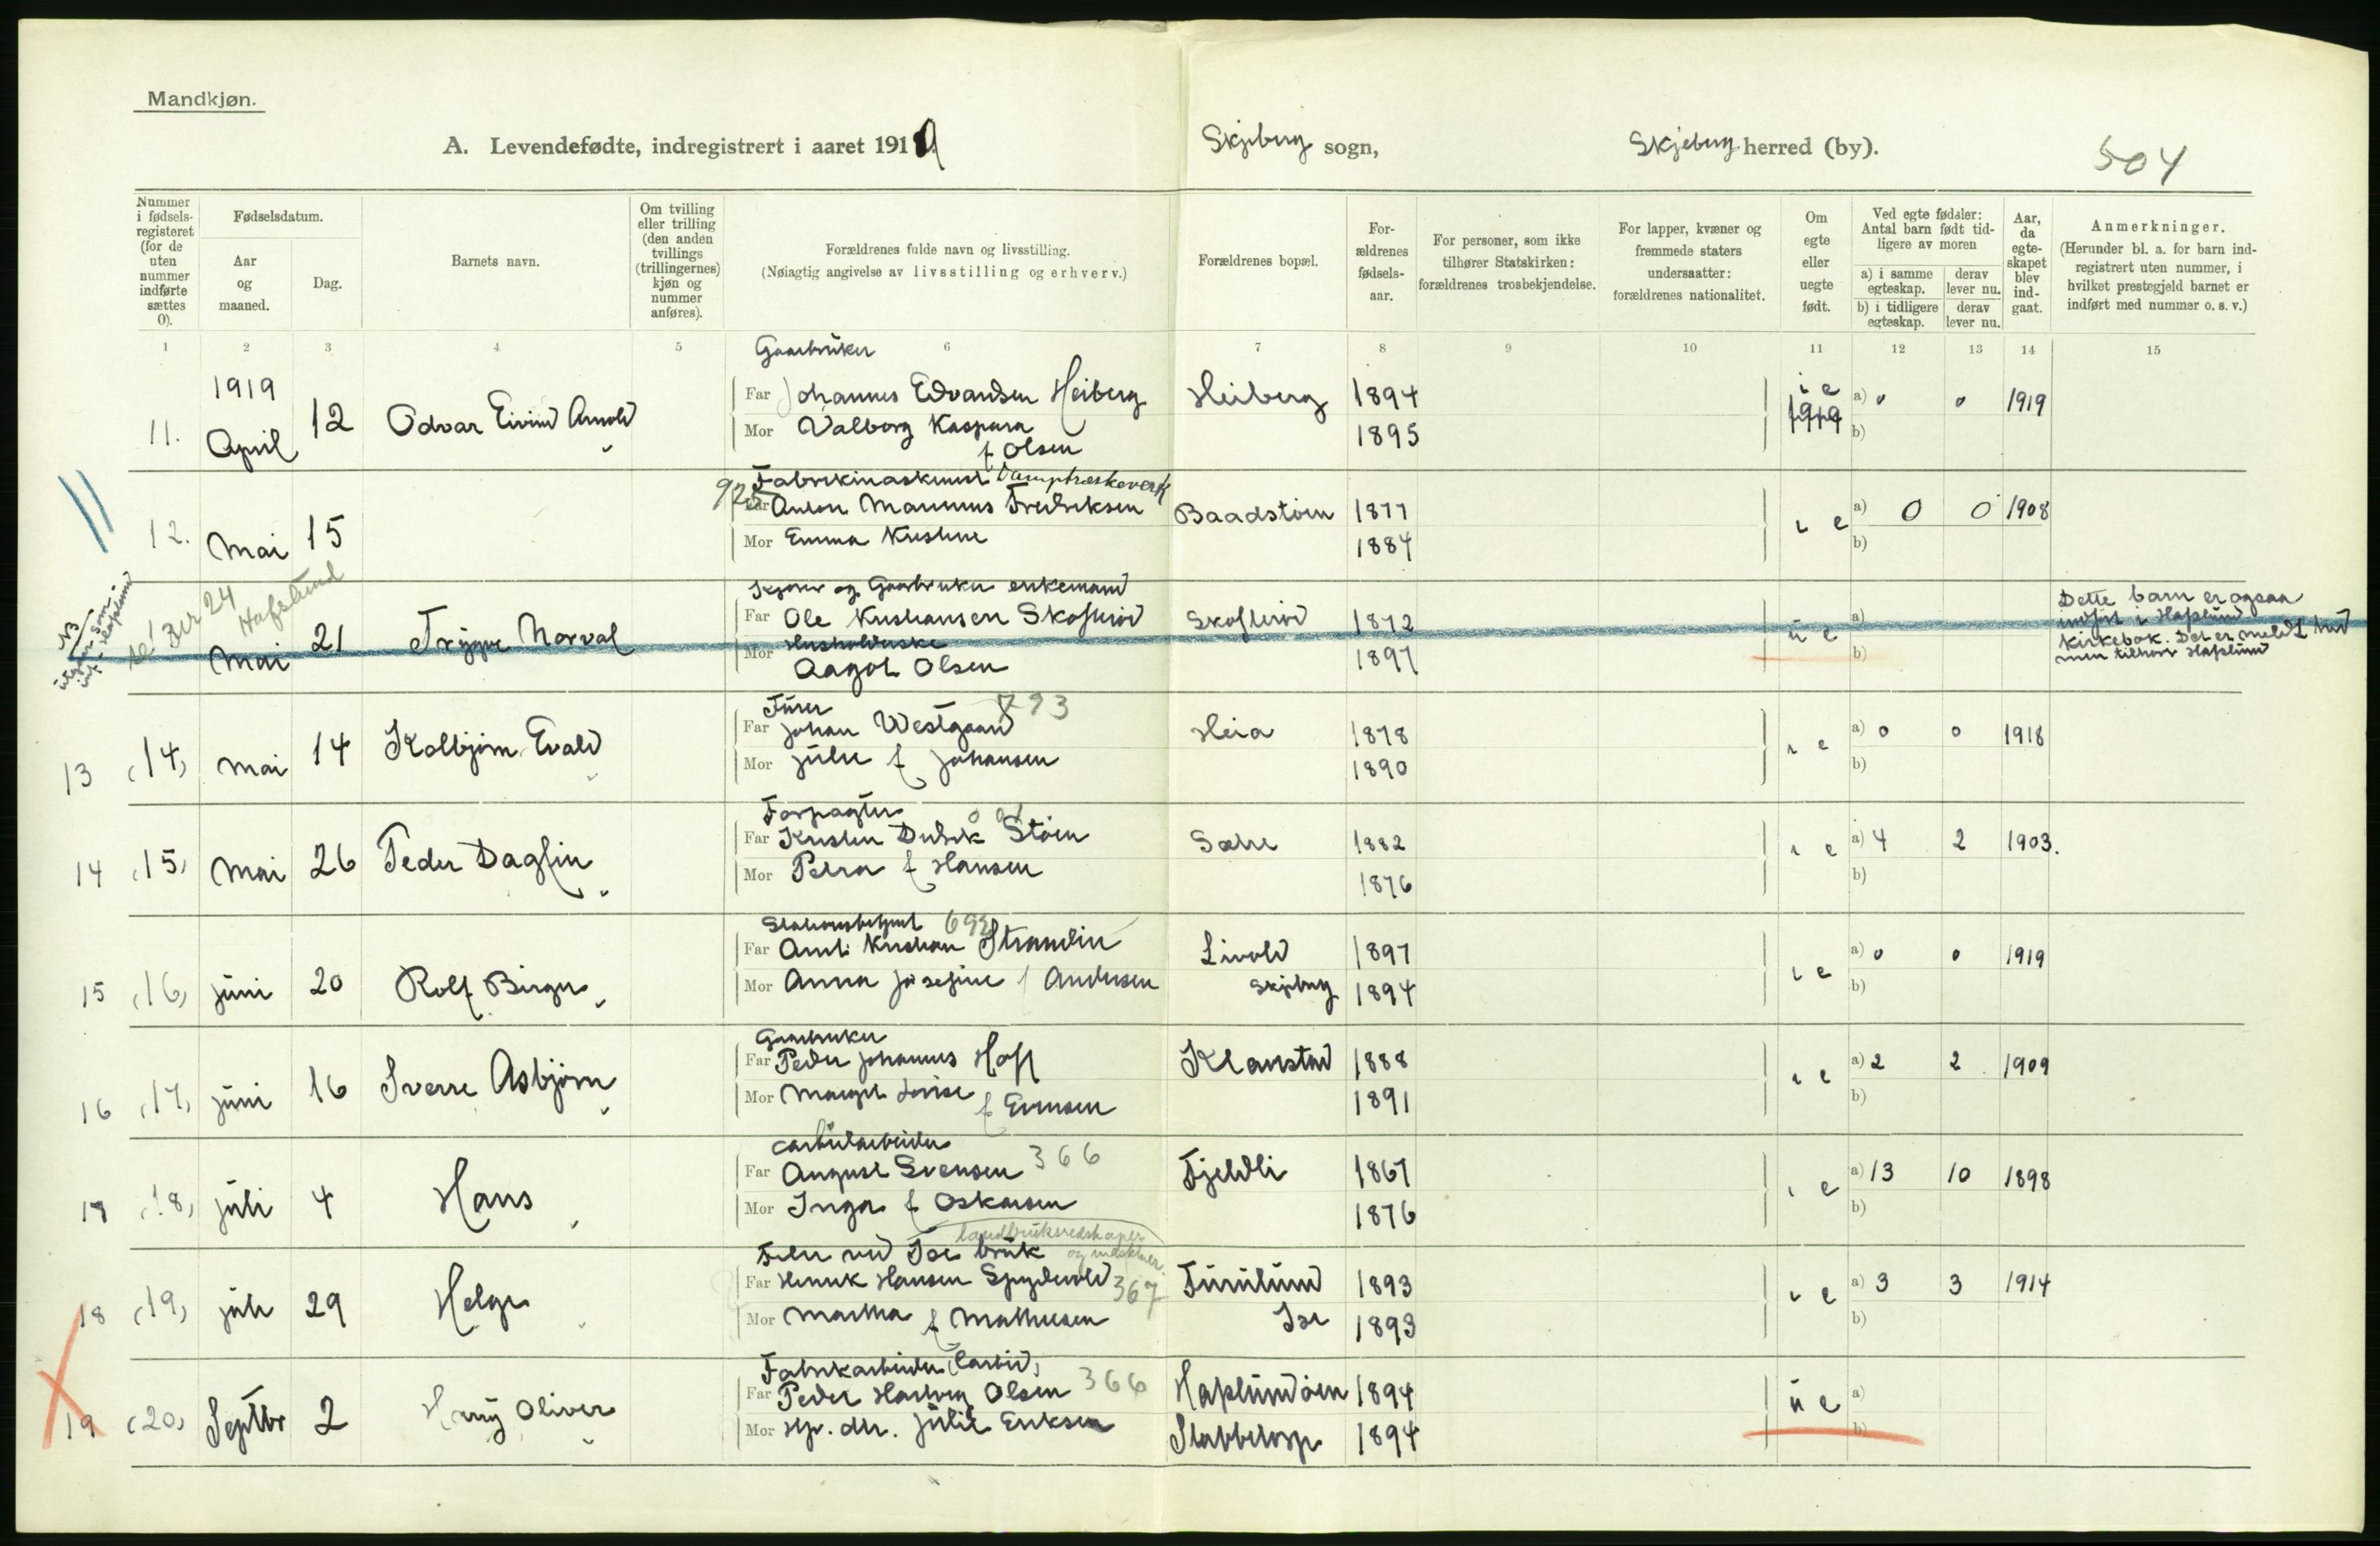 Mandkjøn.
A. Levendefødte, indregistrert i aaret 1919
Skjeberg sogn,
Skjeberg herred (by).
504
Nummer i fødsels-registeret (for de uten nummer indførte sættes 0).
Fødselsdatum.
Aar og maaned.
Dag.
Barnets navn.
Om tvilling eller trilling (den anden tvillings (trillingernes) kjøn og nummer anføres).
Forældrenes fulde navn og livsstilling.
(Nøiagtig angivelse av livsstilling og erhverv.)
Forældrenes bopæl.
For-ældrenes fødsels-aar.
For personer, som ikke tilhører Statskirken: forældrenes trosbekjendelse.
For lapper, kvæner og fremmede staters undersaatter: forældrenes nationalitet.
Om egte eller uegte født.
Ved egte fødsler: Antal barn født tid-ligere av moren
a) i samme egteskap. derav lever nu.
b) i tidligere egteskap. derav lever nu.
Aar, da egte-skapet blev ind-gaat.
Anmerkninger.
(Herunder bl. a. for barn ind-registrert uten nummer, i hvilket prestegjeld barnet er indført med nummer o. s. v.)
1 2 3 4 5 6 7 8 9 10 11 12 13 14 15
Gaarbruker
1919
11. April 12 Odvar Eivind Arnold
Far Johannes Edvardsen Heiberg Heiberg 1894 i e 1919 a) 0 0 1919
Mor Valborg Kaspara 1895 b)
f Olsen
Damptræskeverk
925
12. Mai 15
Far Anton Marinius Fredriksen Baadstøen 1877 i e a) 0 0 1908
Mor Emma Kristine 1884 b)
NB
se 3er 24 Hafslund
Gaarbruker enkemand
Mai 21 Trygve Norval
Far Ole Kristiansen Skofterød Skofterød 1872 u e a)
Husholderske
Mor Aagot Olsen 1897 b)
Dette barn er ogsaa
indført i Hafslund
kirkebok. Det er meldt her
men tilhører Hafslund
793
13 (14) Mai 14 Kolbjørn Evald
Far Johan Westgaard Heia 1878 i e a) 0 0 1918
Mor Julie f Johansen 1890 b)
Forpagter
14 (15) Mai 26 Peder Dagfin
Far Kristen Støen 1882 i e a) 4 2 1903.
Mor Petra f Hansen 1876 b)
Stationsbetjent 692
15 (16) juni 20 Rolf Birger
Far Kristian Strandlie Livold 1897 i e a) 0 0 1919
Mor Anna Josefine f Andersen Skjeberg 1894 b)
Gaarbruker
16 (17) juni 16 Sverre Asbjørn
Far Peder Johannes Hoff Klavestad 1888 i e a) 2 2 1909
Mor Margit Lovise 1891 b)
f Evensen
Carbidarbeider
366
17 (18) juli 4 Hans
Far August Svensen Fjeldli 1867 i e a) 13 10 1898
Mor Inga f Oskarsen 1876 b)
landbruksredskaper
og maskiner.
Filer ved Ise bruk
18 (19) juli 29 Helge
Far Henrik Hansen Spydevold 367 Furulund 1893 i e a) 3 3 1914
Mor Martha f Mathiesen Ise 1893 b)
Fabrikarbeider (Carbid)
366
19 (20) Septbr 2 Harry Oliver
Far Peder Hartvig Olsen Hafslundøen 1894 u e a)
Mor Hp. dtr. Julie Eriksen Stabbetorp 1894 b)